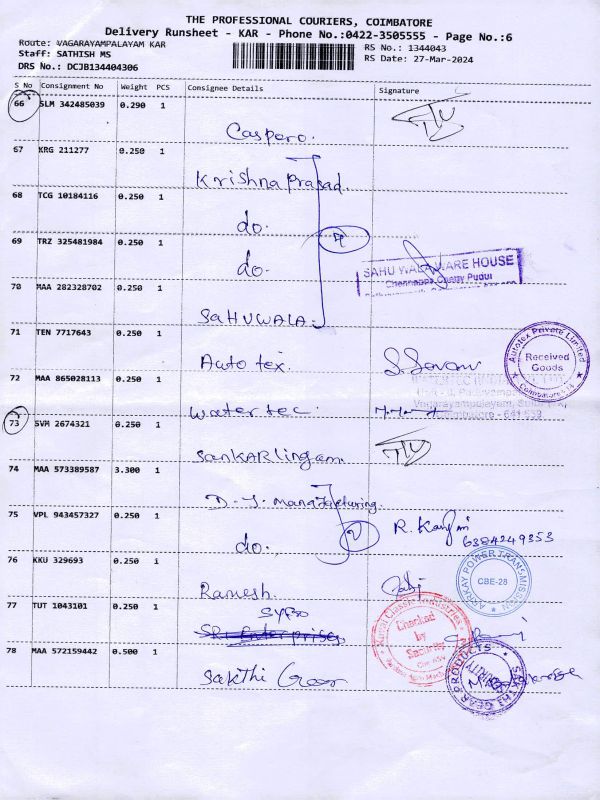 THE PROFESSIONAL COURIERS, COIMBATORE
Delivery Runsheet - KAR - Phone No.:0422-3505555 - Page No.:6
Route: VAGARAYAMPALAYAM KAR
RS No.: 1344043
Staff: SATHISH MS
RS Date: 27-Mar-2024
DRS No.: DCJB134404306
S No Consignment No Weight PCS Consignee Details Signature
66 SLM 342485039 0.290 1
Caspero.
67 KRG 211277 0.250 1
Krishna Prasad.
68 TCG 10184116 0.250 1
do.
69 TRZ 325481984 0.250 1
do.
SAHU WALA WARE HOUSE
70 MAA 282328702 0.250 1
SAHUWALA.
71 TEN 7717643 0.250 1
Auto tex.
Autotex Private Limited
Received
Goods
72 MAA 865028113 0.250 1
Water tec.
Coimbatore - 641 659
73 SVM 2674321 0.250 1
SanKARlingam
74 MAA 573389587 3.300 1
75 VPL 943457327 0.250 1
do.
6384249353
76 KKU 329693 0.250 1
CBE-28
Ramesh.
77 TUT 1043101 0.250 1
Checked
by
Security
78 MAA 572159442 0.500 1
Sakthi Gear
SAKTHI GEAR PRODUCTS
SECURITY